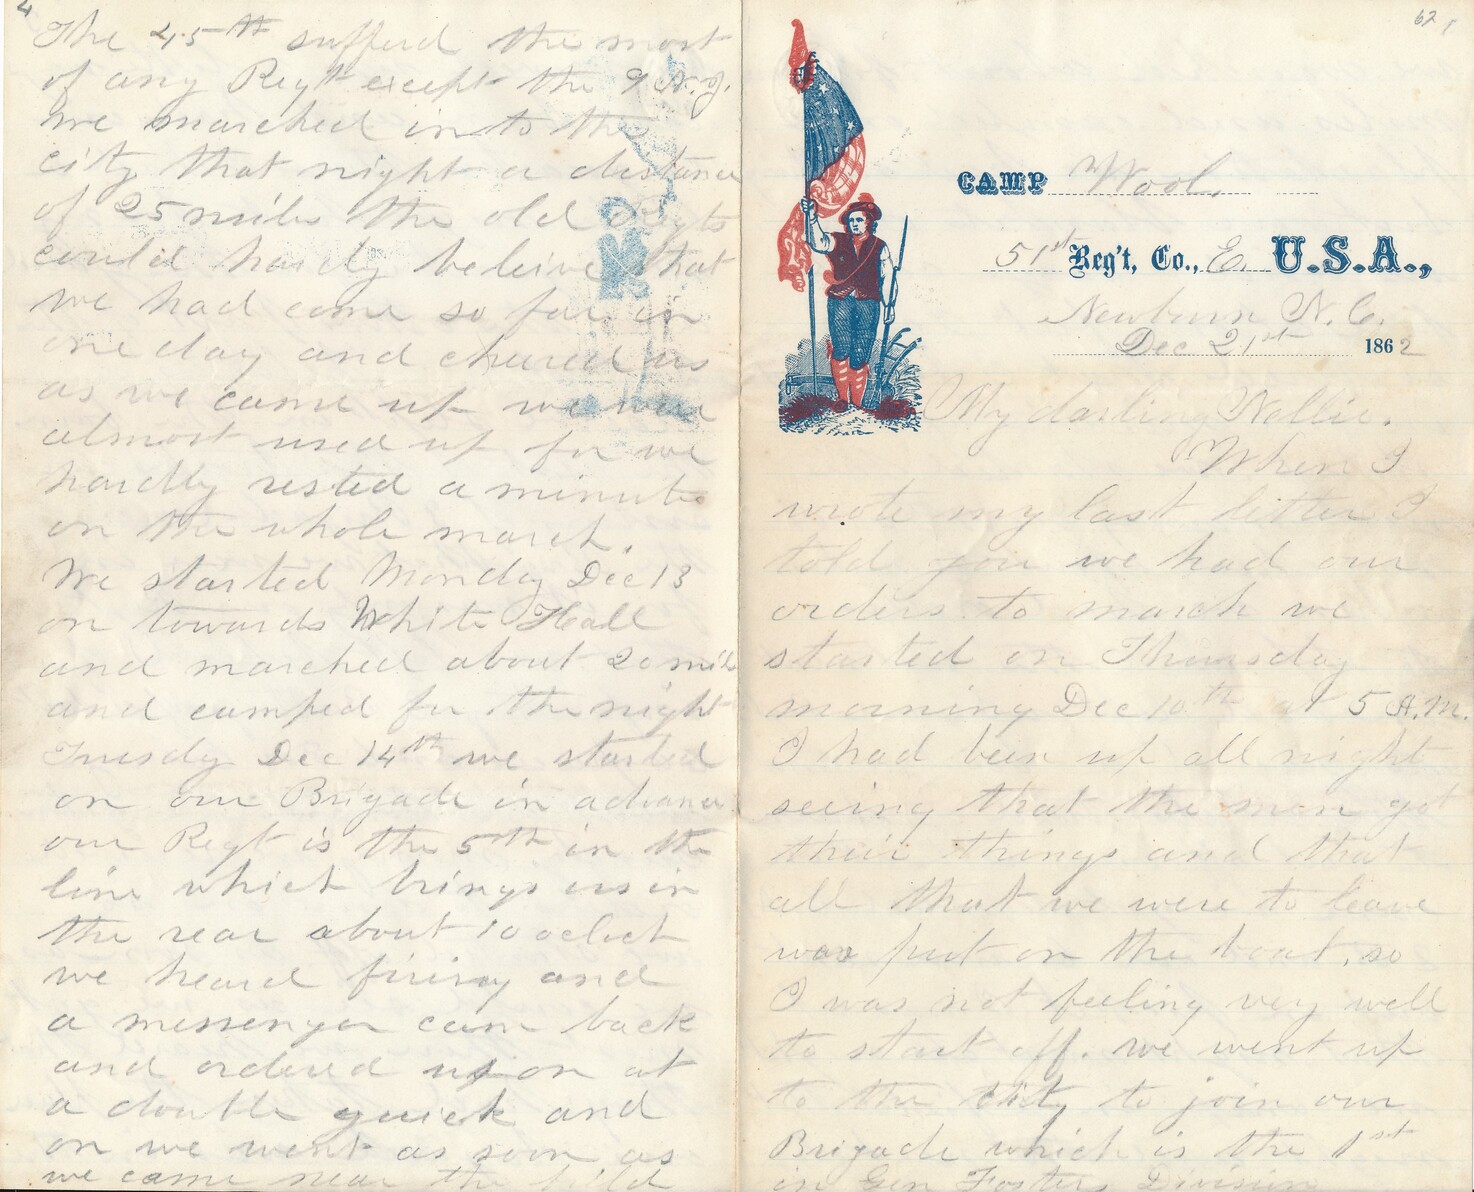 4
The 45th sufferd the most
of any Regt except the 9 N.J.
we marched in to the
city that night a distance
of 25 miles the old Regts
could hardly beleive that
we had come so far in
one day and cheured us
as we came up we were
almost used up for we
hardly rested a minute
on the whole march.
We started Monday Dec 13
on towards White Hall
and marched about 20 mils
and camped for the night
Tuesday Dec 14th we started
on our Brigade in advance
our Regt is the 5th in the
line which brings us in
the rear about 10 oclock
we heard firing and
a messenger came back
and ordered us on at
a double quick and
on we went as soon as
we came near the field
62
CAMP Wool,
51st Reg't, Co., E. U.S.A.,
Newburn N.C.
Dec 21st 1862
My darling Nollie.
When I
wrote my last letter I
told you we had our
orders to march we
started on Thursday
morning Dec 10th at 5 A.M.
I had been up all night
seeing that the men got
their things and that
all that we were to leave
was put on the boat, so
I was not feeling very well
to start off. we went up
to the city to join our
Brigade which is the 1st
in Gen Fosters Division